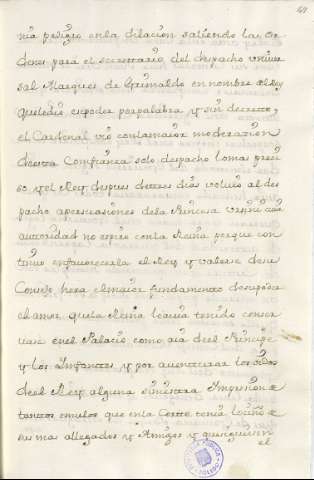 nia peligro en la dilacion saliendo las or
denes para el secretario del despacho univer
sal Marques de Grimaldo en nombre del Rey
que le dio el poder por palabra y sin decreto,
el Cardenal usò con la maior moderazion
de esta Confianza solo despacho lo mas preci
so y el Rey despues de tres dias volviò al des
pacho a persuasiones de la Princesa Ursini cuia
autoridad no espiro con la Reina porque con
tinuo en favorecerla el Rey y valerse de su
Consejo hera el maior fundamento de su poder
el amor que la Reina le avia tenido conser
vase en el Palacio como aia del Principe
y los Infantes y por aventurar los oidos
de el Rey alguna siniestra Impresion de
tantos emulos que en la Corte tenia
sus mas allegados y Amigos y aun quisieron
el